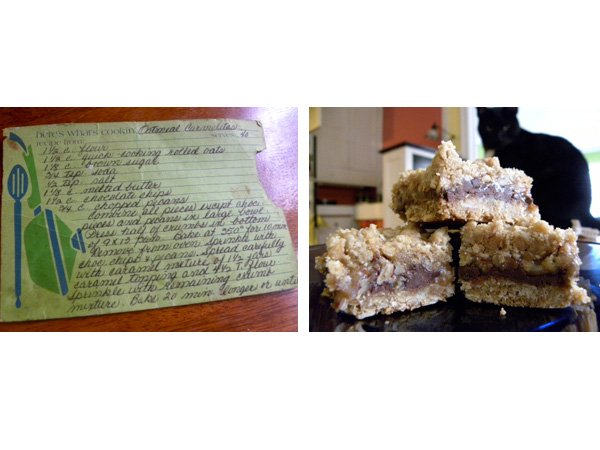 here's what's cookin' Oatmeal Carmelitas
recipe from: serves:
1½ c. flour
1½ c. quick-cooking rolled oats
brown sugar
tsp. soda
½ tsp. salt
c. melted butter
c. chocolate chips
c. chopped pecans
Combine all pieces except choc.
pieces and pecans in large bowl.
Press half of crumbs in bottom
of 9 x 13 pan. Bake at 350° for 10 min.
Remove from oven. Sprinkle with
choc. chips & pecans. Spread carefully
with caramel mixture of 1½ jars
caramel topping and 4½ T. flour
Sprinkle with remaining crumb
mixture. Bake 20 min. longer or until